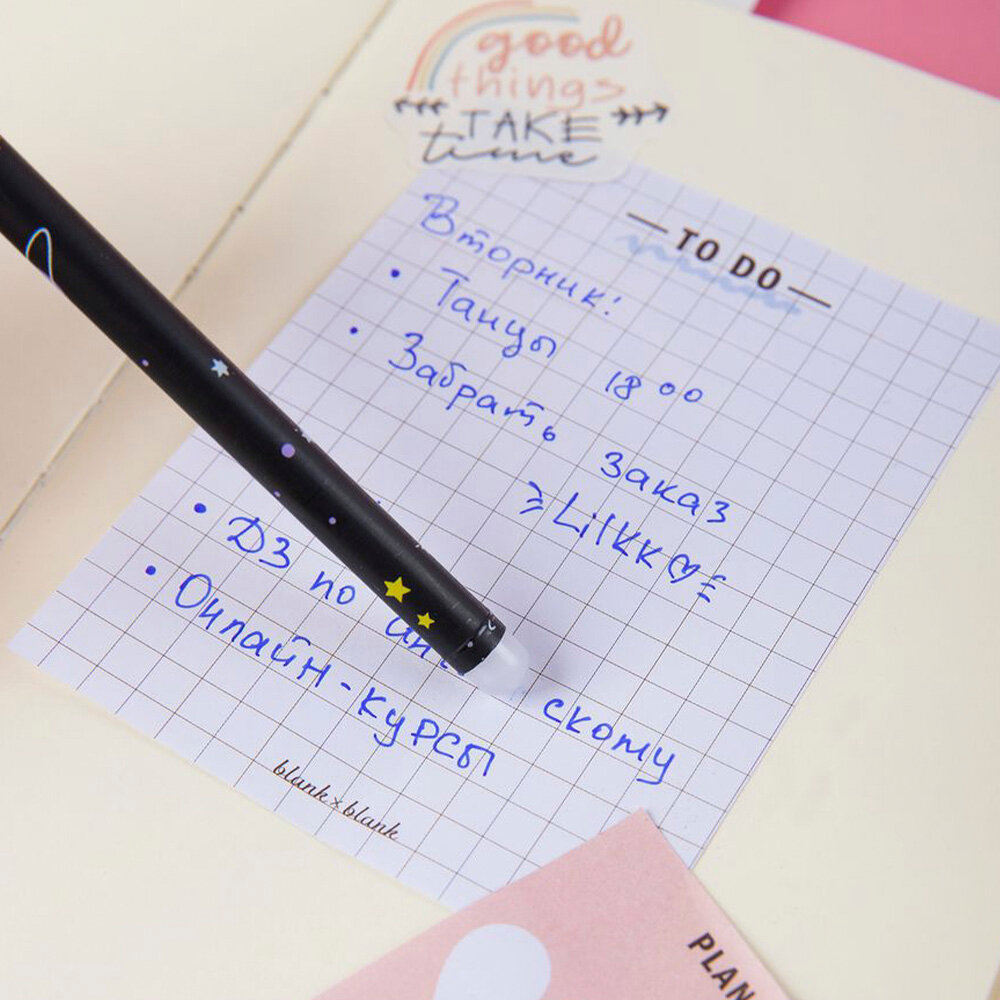 good
things
TAKE
time
TO DO
Вторник:
• Танцы 18 00
• Забрать заказ
Lilkk♡
• ДЗ по скому
• Онлайн-курсы
blank x blank
PLAN